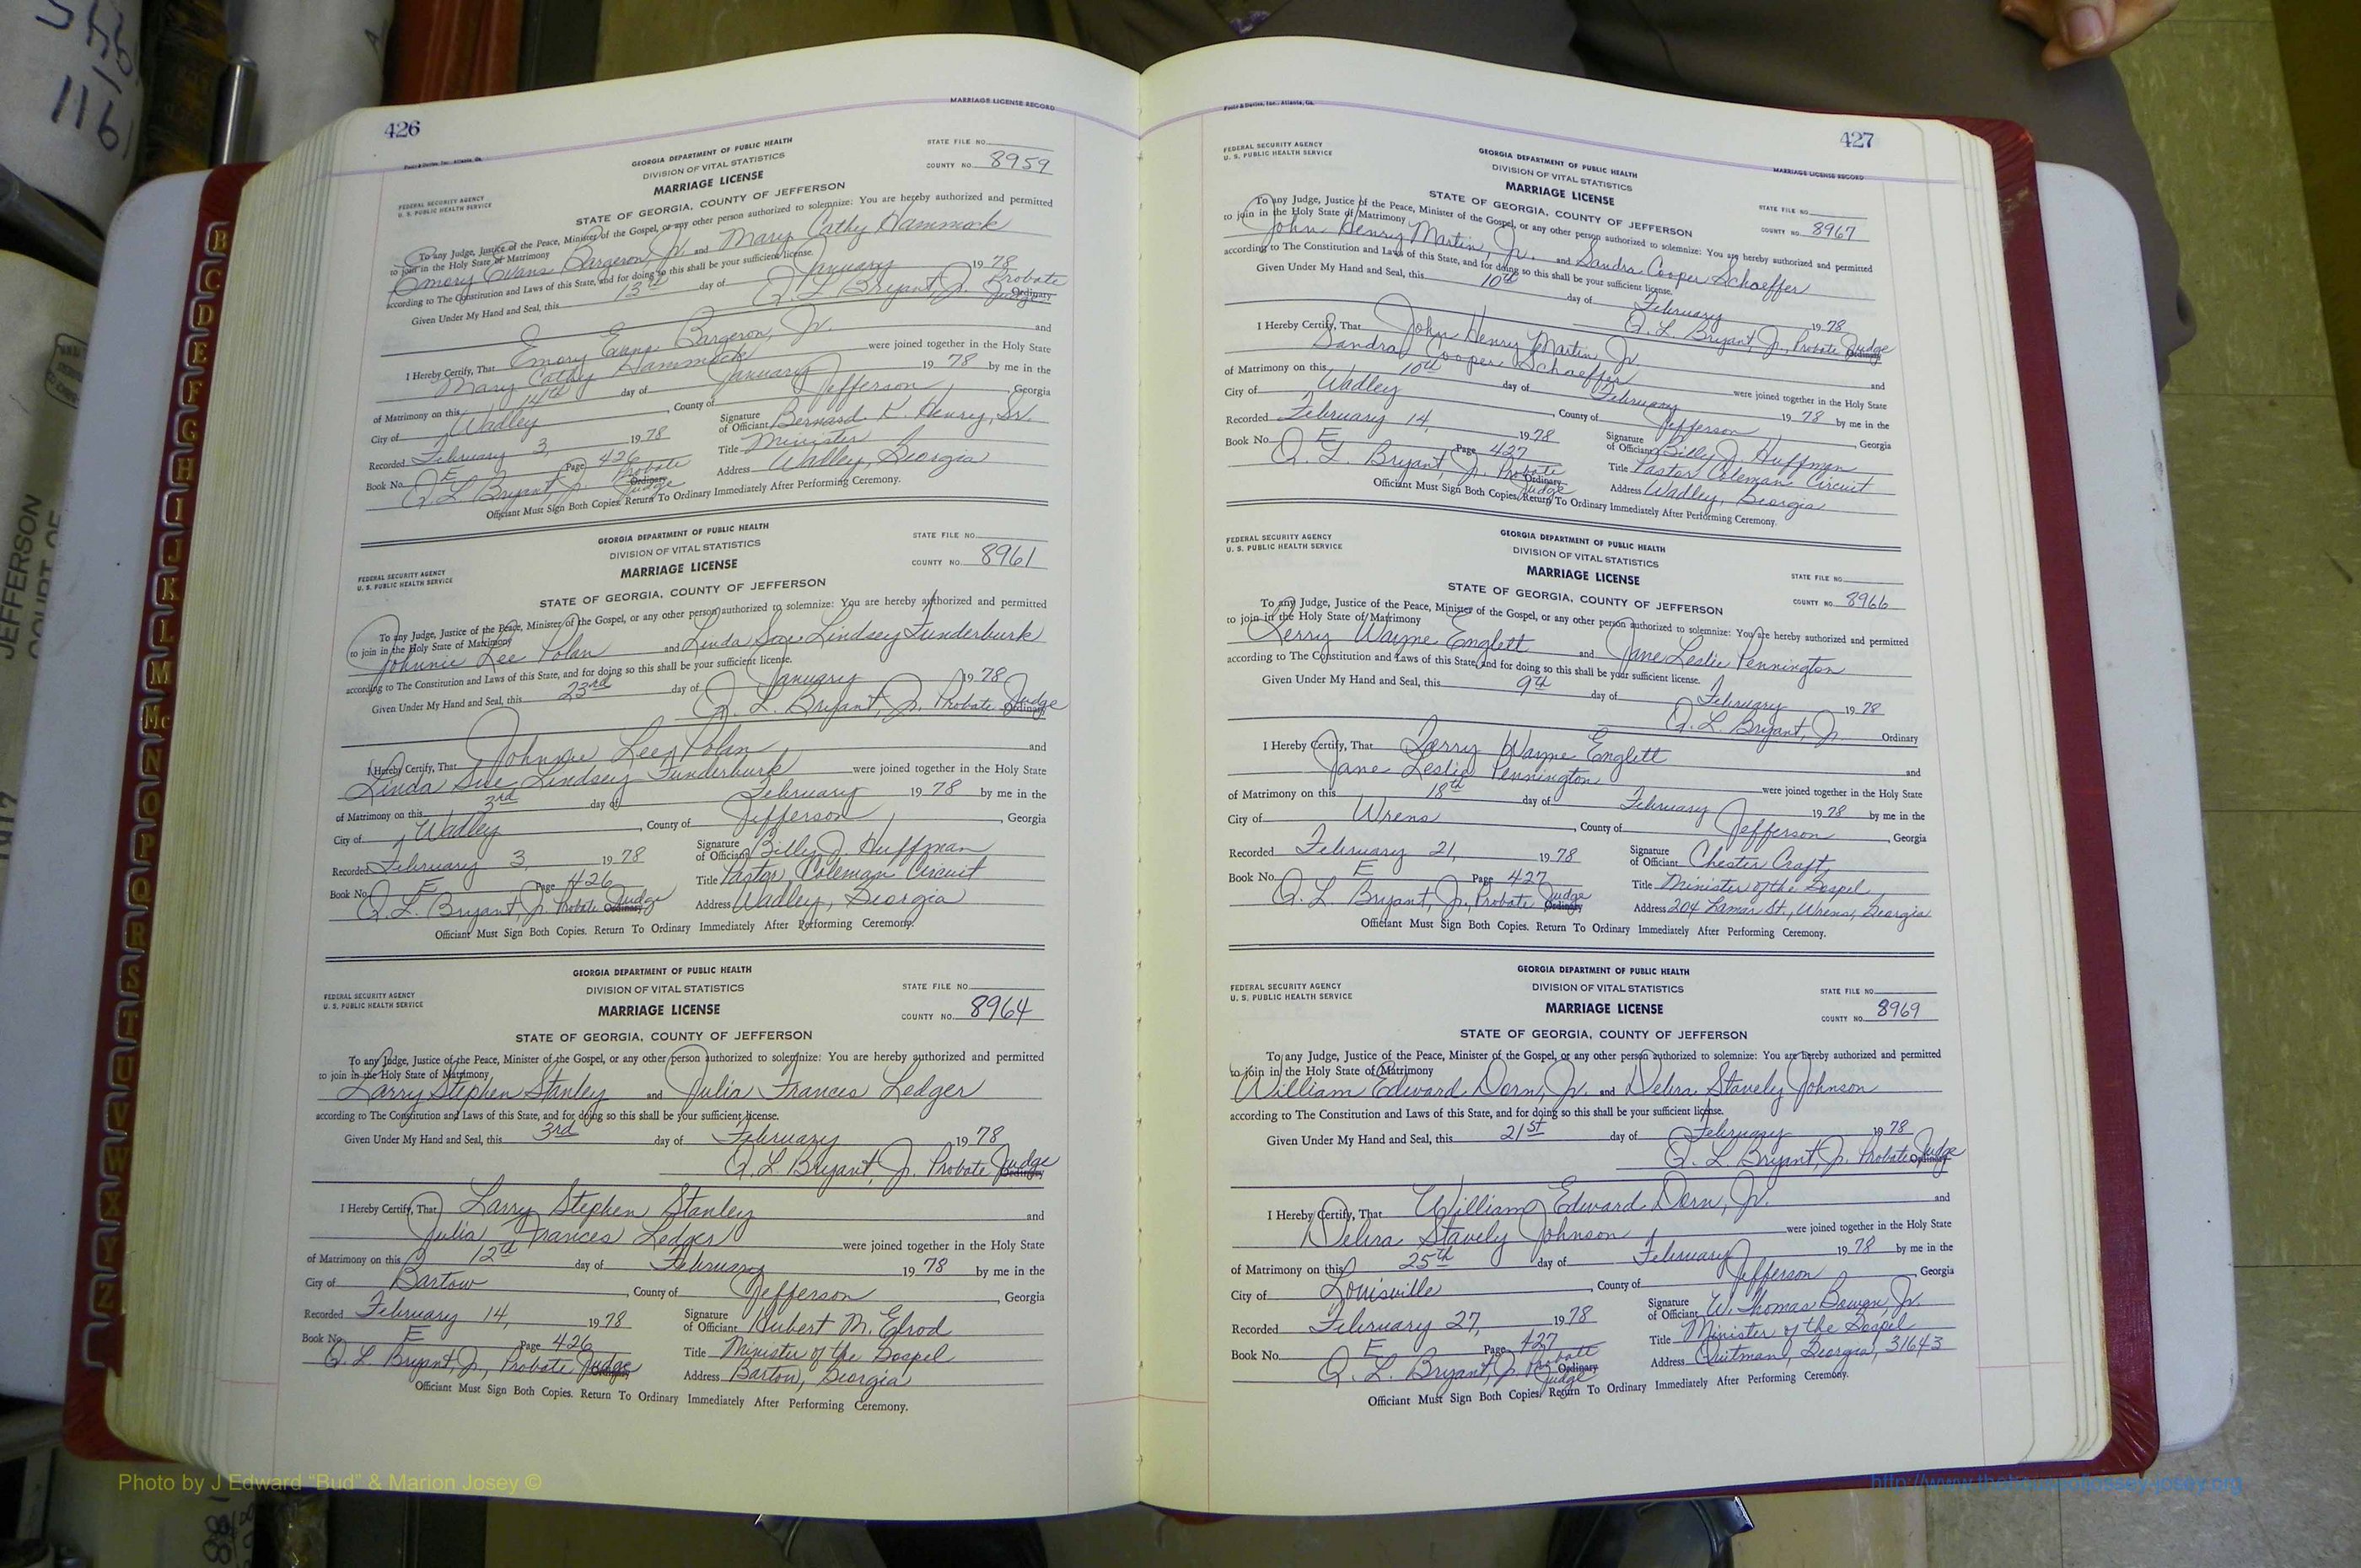 426
MARRIAGE LICENSE RECORD
GEORGIA DEPARTMENT OF PUBLIC HEALTH
DIVISION OF VITAL STATISTICS
MARRIAGE LICENSE
STATE OF GEORGIA, COUNTY OF JEFFERSON
FEDERAL SECURITY AGENCY
U. S. PUBLIC HEALTH SERVICE
STATE FILE NO.
COUNTY NO. 8959
To any Judge, Justice of the Peace, Minister of the Gospel, or any other person authorized to solemnize: You are hereby authorized and permitted
to join in the Holy State of Matrimony
Emory Evans Bargeron, Jr. and Mary Cathy Hammock
according to The Constitution and Laws of this State, and for doing so this shall be your sufficient license.
Given Under My Hand and Seal, this 13th day of January 1978
Q. L. Bryant, Jr. Probate Judge Ordinary
I Hereby Certify, That Emory Evans Bargeron, Jr. and
Mary Cathy Hammock were joined together in the Holy State
of Matrimony on this 14th day of January 1978 by me in the
City of Wadley, County of Jefferson, Georgia
Recorded February 3, 1978
Book No. E Page 426
Q. L. Bryant, Jr. Probate Judge Ordinary
Signature of Officiant Bernard K. Henry, Sr.
Title Minister
Address Wadley, Georgia
Officiant Must Sign Both Copies. Return To Ordinary Immediately After Performing Ceremony.
GEORGIA DEPARTMENT OF PUBLIC HEALTH
DIVISION OF VITAL STATISTICS
MARRIAGE LICENSE
STATE OF GEORGIA, COUNTY OF JEFFERSON
FEDERAL SECURITY AGENCY
U. S. PUBLIC HEALTH SERVICE
STATE FILE NO.
COUNTY NO. 8961
To any Judge, Justice of the Peace, Minister of the Gospel, or any other person authorized to solemnize: You are hereby authorized and permitted
to join in the Holy State of Matrimony
Johnnie Lee Polan and Linda Sue Lindsey Funderburk
according to The Constitution and Laws of this State, and for doing so this shall be your sufficient license.
Given Under My Hand and Seal, this 23rd day of January 1978
Q. L. Bryant, Jr. Probate Judge Ordinary
I Hereby Certify, That Johnnie Lee Polan and
Linda Sue Lindsey Funderburk were joined together in the Holy State
of Matrimony on this 3rd day of February 1978 by me in the
City of Wadley, County of Jefferson, Georgia
Recorded February 3, 1978
Book No. E Page 426
Q. L. Bryant, Jr. Probate Judge Ordinary
Signature of Officiant Billy J. Huffman
Title Pastor, Coleman Circuit
Address Wadley, Georgia
Officiant Must Sign Both Copies. Return To Ordinary Immediately After Performing Ceremony.
GEORGIA DEPARTMENT OF PUBLIC HEALTH
DIVISION OF VITAL STATISTICS
MARRIAGE LICENSE
STATE OF GEORGIA, COUNTY OF JEFFERSON
FEDERAL SECURITY AGENCY
U. S. PUBLIC HEALTH SERVICE
STATE FILE NO.
COUNTY NO. 8964
To any Judge, Justice of the Peace, Minister of the Gospel, or any other person authorized to solemnize: You are hereby authorized and permitted
to join in the Holy State of Matrimony
Larry Stephen Stanley and Julia Frances Ledger
according to The Constitution and Laws of this State, and for doing so this shall be your sufficient license.
Given Under My Hand and Seal, this 3rd day of February 1978
Q. L. Bryant, Jr. Probate Judge Ordinary
I Hereby Certify, That Larry Stephen Stanley and
Julia Frances Ledger were joined together in the Holy State
of Matrimony on this 12th day of February 1978 by me in the
City of Bartow, County of Jefferson, Georgia
Recorded February 14, 1978
Book No. E Page 426
Q. L. Bryant, Jr., Probate Judge Ordinary
Signature of Officiant Hubert M. Elrod
Title Minister of the Gospel
Address Bartow, Georgia
Officiant Must Sign Both Copies. Return To Ordinary Immediately After Performing Ceremony.
427
MARRIAGE LICENSE RECORD
GEORGIA DEPARTMENT OF PUBLIC HEALTH
DIVISION OF VITAL STATISTICS
MARRIAGE LICENSE
STATE OF GEORGIA, COUNTY OF JEFFERSON
FEDERAL SECURITY AGENCY
U. S. PUBLIC HEALTH SERVICE
STATE FILE NO.
COUNTY NO. 8967
To any Judge, Justice of the Peace, Minister of the Gospel, or any other person authorized to solemnize: You are hereby authorized and permitted
to join in the Holy State of Matrimony
John Henry Martin, Jr. and Sandra Cooper Schaeffer
according to The Constitution and Laws of this State, and for doing so this shall be your sufficient license.
Given Under My Hand and Seal, this 10th day of February 1978
Q. L. Bryant, Jr., Probate Judge Ordinary
I Hereby Certify, That John Henry Martin, Jr. and
Sandra Cooper Schaeffer were joined together in the Holy State
of Matrimony on this 10th day of February 1978 by me in the
City of Wadley, County of Jefferson, Georgia
Recorded February 14, 1978
Book No. E Page 427
Q. L. Bryant, Jr. Probate Judge Ordinary
Signature of Officiant Billy J. Huffman
Title Pastor Coleman Circuit
Address Wadley, Georgia
Officiant Must Sign Both Copies. Return To Ordinary Immediately After Performing Ceremony.
GEORGIA DEPARTMENT OF PUBLIC HEALTH
DIVISION OF VITAL STATISTICS
MARRIAGE LICENSE
STATE OF GEORGIA, COUNTY OF JEFFERSON
FEDERAL SECURITY AGENCY
U. S. PUBLIC HEALTH SERVICE
STATE FILE NO.
COUNTY NO. 8966
To any Judge, Justice of the Peace, Minister of the Gospel, or any other person authorized to solemnize: You are hereby authorized and permitted
to join in the Holy State of Matrimony
Wayne Englett and Jane Leslie Pennington
according to The Constitution and Laws of this State, and for doing so this shall be your sufficient license.
Given Under My Hand and Seal, this 9th day of February 1978
Q. L. Bryant, Jr. Ordinary
I Hereby Certify, That Wayne Englett and
Jane Leslie Pennington were joined together in the Holy State
of Matrimony on this 18th day of February 1978 by me in the
City of Wrens, County of Jefferson, Georgia
Recorded February 21, 1978
Book No. E Page 427
Q. L. Bryant, Jr., Probate Judge Ordinary
Signature of Officiant Chester Craft
Title Minister of the Gospel
Address 204 Lamar St., Wrens, Georgia
Officiant Must Sign Both Copies. Return To Ordinary Immediately After Performing Ceremony.
GEORGIA DEPARTMENT OF PUBLIC HEALTH
DIVISION OF VITAL STATISTICS
MARRIAGE LICENSE
STATE OF GEORGIA, COUNTY OF JEFFERSON
FEDERAL SECURITY AGENCY
U. S. PUBLIC HEALTH SERVICE
STATE FILE NO.
COUNTY NO. 8969
To any Judge, Justice of the Peace, Minister of the Gospel, or any other person authorized to solemnize: You are hereby authorized and permitted
to join in the Holy State of Matrimony
William Edward Dorn, Jr. and Debra Stavely Johnson
according to The Constitution and Laws of this State, and for doing so this shall be your sufficient license.
Given Under My Hand and Seal, this 21st day of February 1978
Q. L. Bryant, Jr. Probate Judge Ordinary
I Hereby Certify, That William Edward Dorn, Jr. and
Debra Stavely Johnson were joined together in the Holy State
of Matrimony on this 25th day of February 1978 by me in the
City of Louisville, County of Jefferson, Georgia
Recorded February 27, 1978
Book No. E Page 427
Q. L. Bryant, Jr. Probate Judge Ordinary
Signature of Officiant W. Thomas Bowen, Jr.
Title Minister of the Gospel
Address Quitman, Georgia, 31643
Officiant Must Sign Both Copies. Return To Ordinary Immediately After Performing Ceremony.
B
C
D
E
F
G
H
I
J
K
L
M
Mc
N
O
P
Q
R
S
T
U
V
W
X
Y
Z
JEFFERSON
COURT OF
Photo by J Edward “Bud” & Marion Josey ©